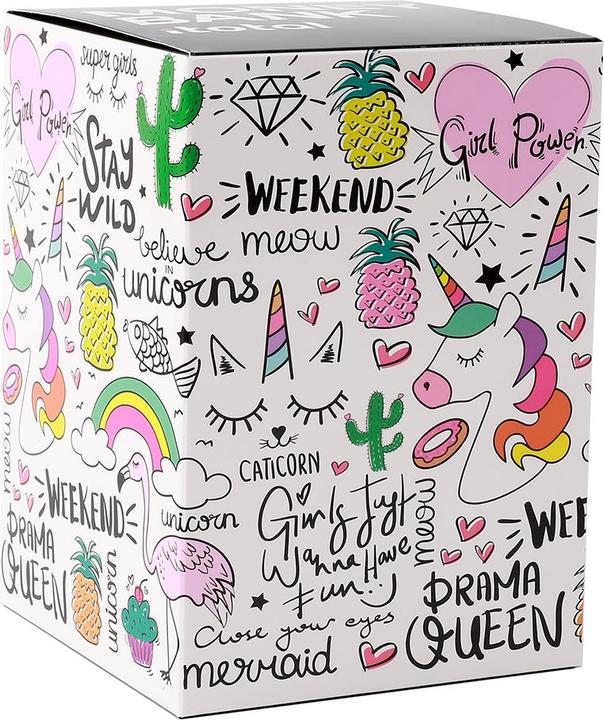 MONEY
BANK
:total
super girls
Girl Power
STAY
WILD
believe
IN
unicorns
meow
WEEKEND
DRAMA
QUEEN
unicorn
unicorn
Girl Power
WEEKEND
meow
CATICORN
Girls Just
Wanna Have
Fun:)
meow
Close your eyes
mermaid
WEE
DRAMA
QUEEN